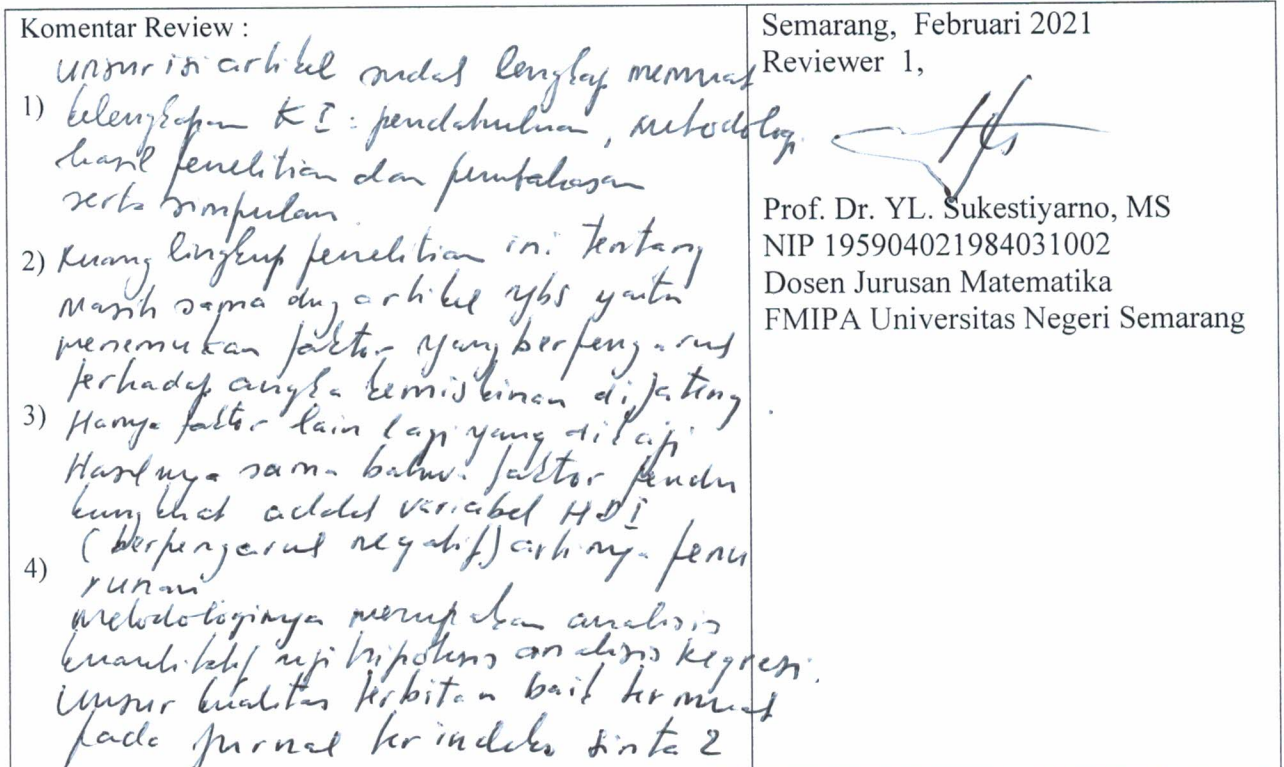 Komentar Review :
unsur isi artikel sudah lengkap memuat
1) kelengkapan KI : pendahuluan, metodologi
hasil penelitian dan pembahasan
serta simpulan.
2) Ruang lingkup penelitian ini tentang
masih sama dng artikel ybs yaitu
menemukan faktor yang berpengaruh
terhadap angka kemiskinan di Jateng
3) Hanya faktor lain lagi yang dikaji
Hasilnya sama bahwa faktor
adalah variabel HDI
(berpengaruh negatif) artinya penu
runan
4)
metodologinya merupakan analisis
kuantitatif uji hipotesis analisis Regresi.
Unsur kualitas terbitan baik termuat
pada jurnal terindeks sinta 2
Semarang, Februari 2021
Reviewer 1,
Prof. Dr. YL. Sukestiyarno, MS
NIP 195904021984031002
Dosen Jurusan Matematika
FMIPA Universitas Negeri Semarang